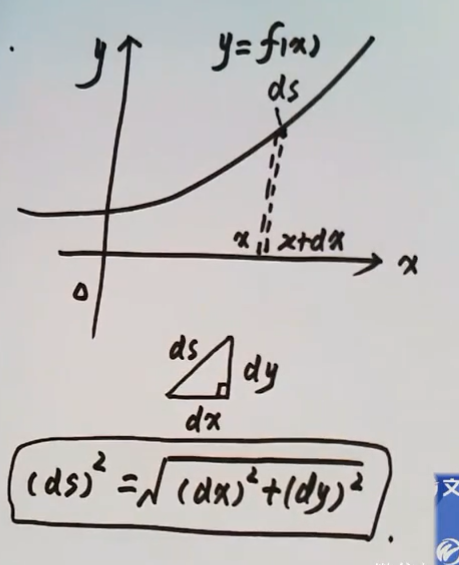 y
y=f(x)
ds
x x+dx
x
0
ds
dy
dx
(ds)²=√(dx)²+(dy)²
文